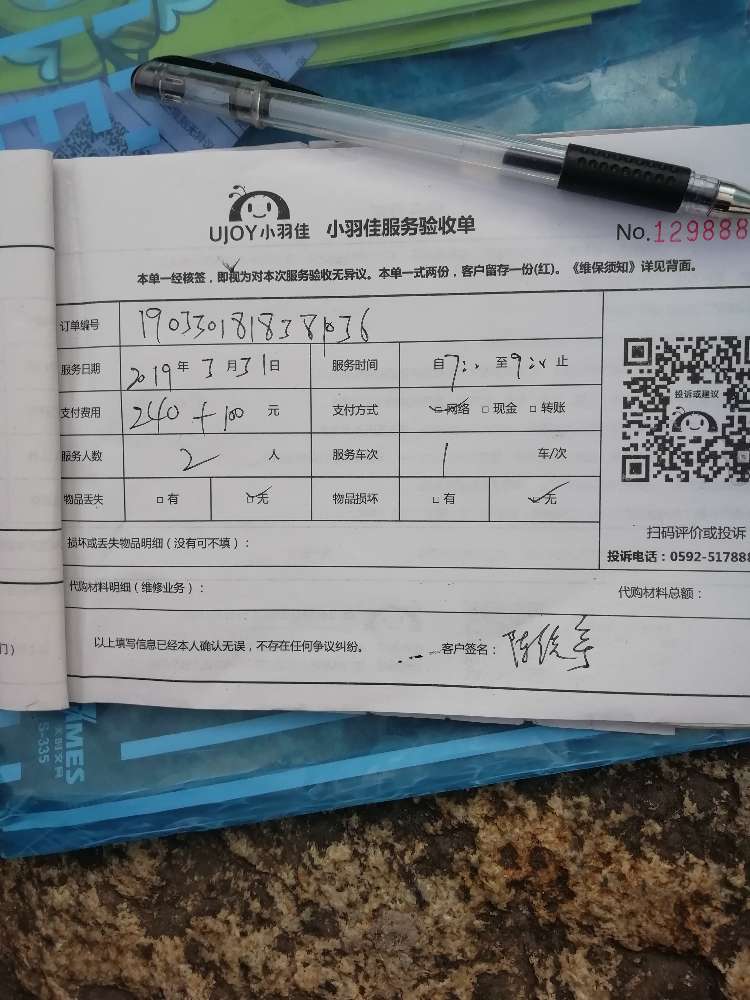 UJOY小羽佳 小羽佳服务验收单
No.129888
本单一经核签，即视为对本次服务验收无异议。本单一式两份，客户留存一份(红)。《维保须知》详见背面。
订单编号 1903301818381036
服务日期 2019年3月31日 服务时间 自7:00至9:00止
支付费用 240+100元 支付方式 网络 现金 转账
投诉或建议
服务人数 2人 服务车次 1车/次
物品丢失 有 无 物品损坏 有 无
扫码评价或投诉
损坏或丢失物品明细（没有可不填）：
投诉电话：0592-517888
代购材料明细（维修业务）： 代购材料总额：
以上填写信息已经本人确认无误，不存在任何争议纠纷。 客户签名：
门）
TIMES
S-335